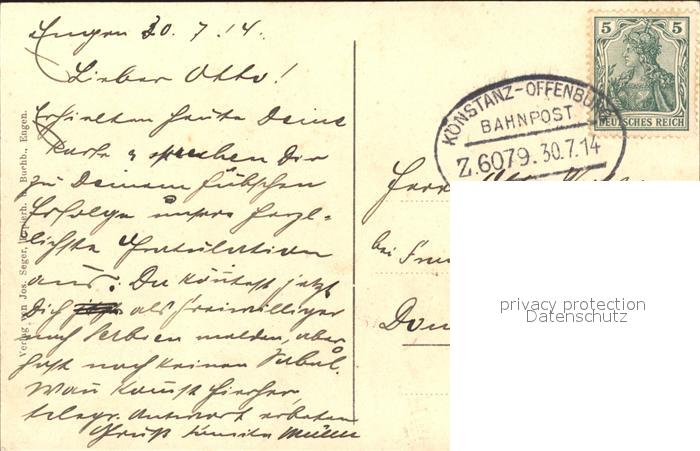 Engen 30.7.14.
Lieber Otto!
Erhielten heute Deine
Karte & sprechen Dir
zu Deinem hübschen
Erfolge unsere herz-
lichste Gratulation
aus. Du könntest jetzt
Dich als Freiwilliger
nach Serbien melden, aber
hast noch keinen Säbel.
Wan komst hierher
telegr. Antwort erbeten
Gruß Familie Müller
Verlag von Jos. Seger, Papierh. u. Buchb., Engen.
KONSTANZ-OFFENBURG
BAHNPOST
Z.6079.30.7.14
5 5
DEUTSCHES REICH
Herrn
bei
Don
privacy protection
Datenschutz